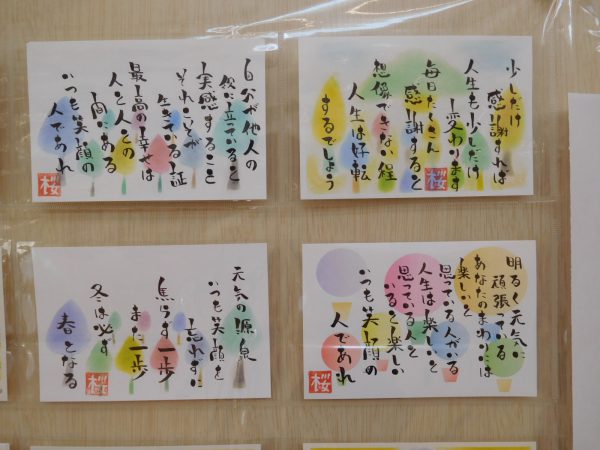 自分が他人の
役に立っていること
実感すること
それこそが
生きている証
最高の幸せは
人と人との
間にある
いつも笑顔の
人であれ
桜
少しだけ
感謝すれば
人生も少しだけ
変わります
毎日たくさん
感謝すると
想像できない程
人生は好転
するでしょう
桜
元気の源泉
いつも笑顔を
忘れずに
焦らず一歩
また一歩
冬は必ず
春となる
桜
明るく元気に
頑張っている
あなたのまわりには
楽しいと
思っている人がいる
人生は楽しいと
思っている人と
いると楽しい
いつも笑顔の
人であれ
桜